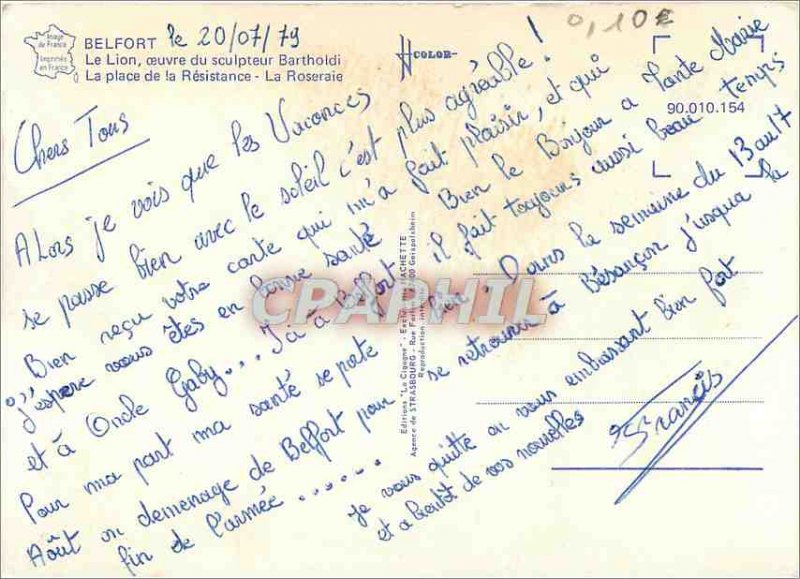 Image de France
Imprimée en France
BELFORT le 20/07/79
Le Lion, œuvre du sculpteur Bartholdi
La place de la Résistance - La Roseraie
COLOR
0,10€
90.010.154
Chers Tous
Alors je vois que les Vacances
se passe bien avec le soleil c'est plus agréable !
Bien reçu votre carte qui m'a fait plaisir, et qui
j'espere vous êtes en bonne santé Bien le Bonjour a Tante Marie
et à Oncle Gaby... Ici à Belfort il fait toujours aussi beau temps
Pour ma part ma santé se porte bien. Dans la semaine du 13 au 17
Août on demenage de Belfort pour se retrouver à Bésançon jusqua la
fin de l'armée......
Je vous quitte en vous embrassant bien fort
et a bientôt de vos nouvelles
Francis
Editions "La Cigogne" - Exclusivité HACHETTE
Agence de STRASBOURG - Rue Geispolsheim
Reproduction
CPAPHIL